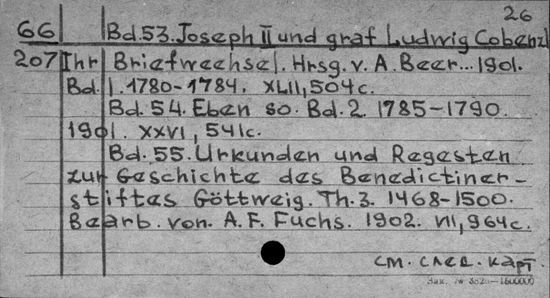 26
66 Bd.53. Joseph II und graf Ludwig Cobenzl
207 Ihr Briefwechsel. Hrsg. v. A. Beer... 1901.
Bd. 1. 1780-1784. XLII, 504c.
Bd. 54. Eben so. Bd. 2. 1785-1790.
1901. XXVI, 541c.
Bd. 55. Urkunden und Regesten
zur Geschichte des Benedictiner-
stiftes Göttweig. Th. 3. 1468-1500.
Bearb. von. A. F. Fuchs. 1902. VII, 964c.
см. след. карт.
Зак. № 3820—1600000